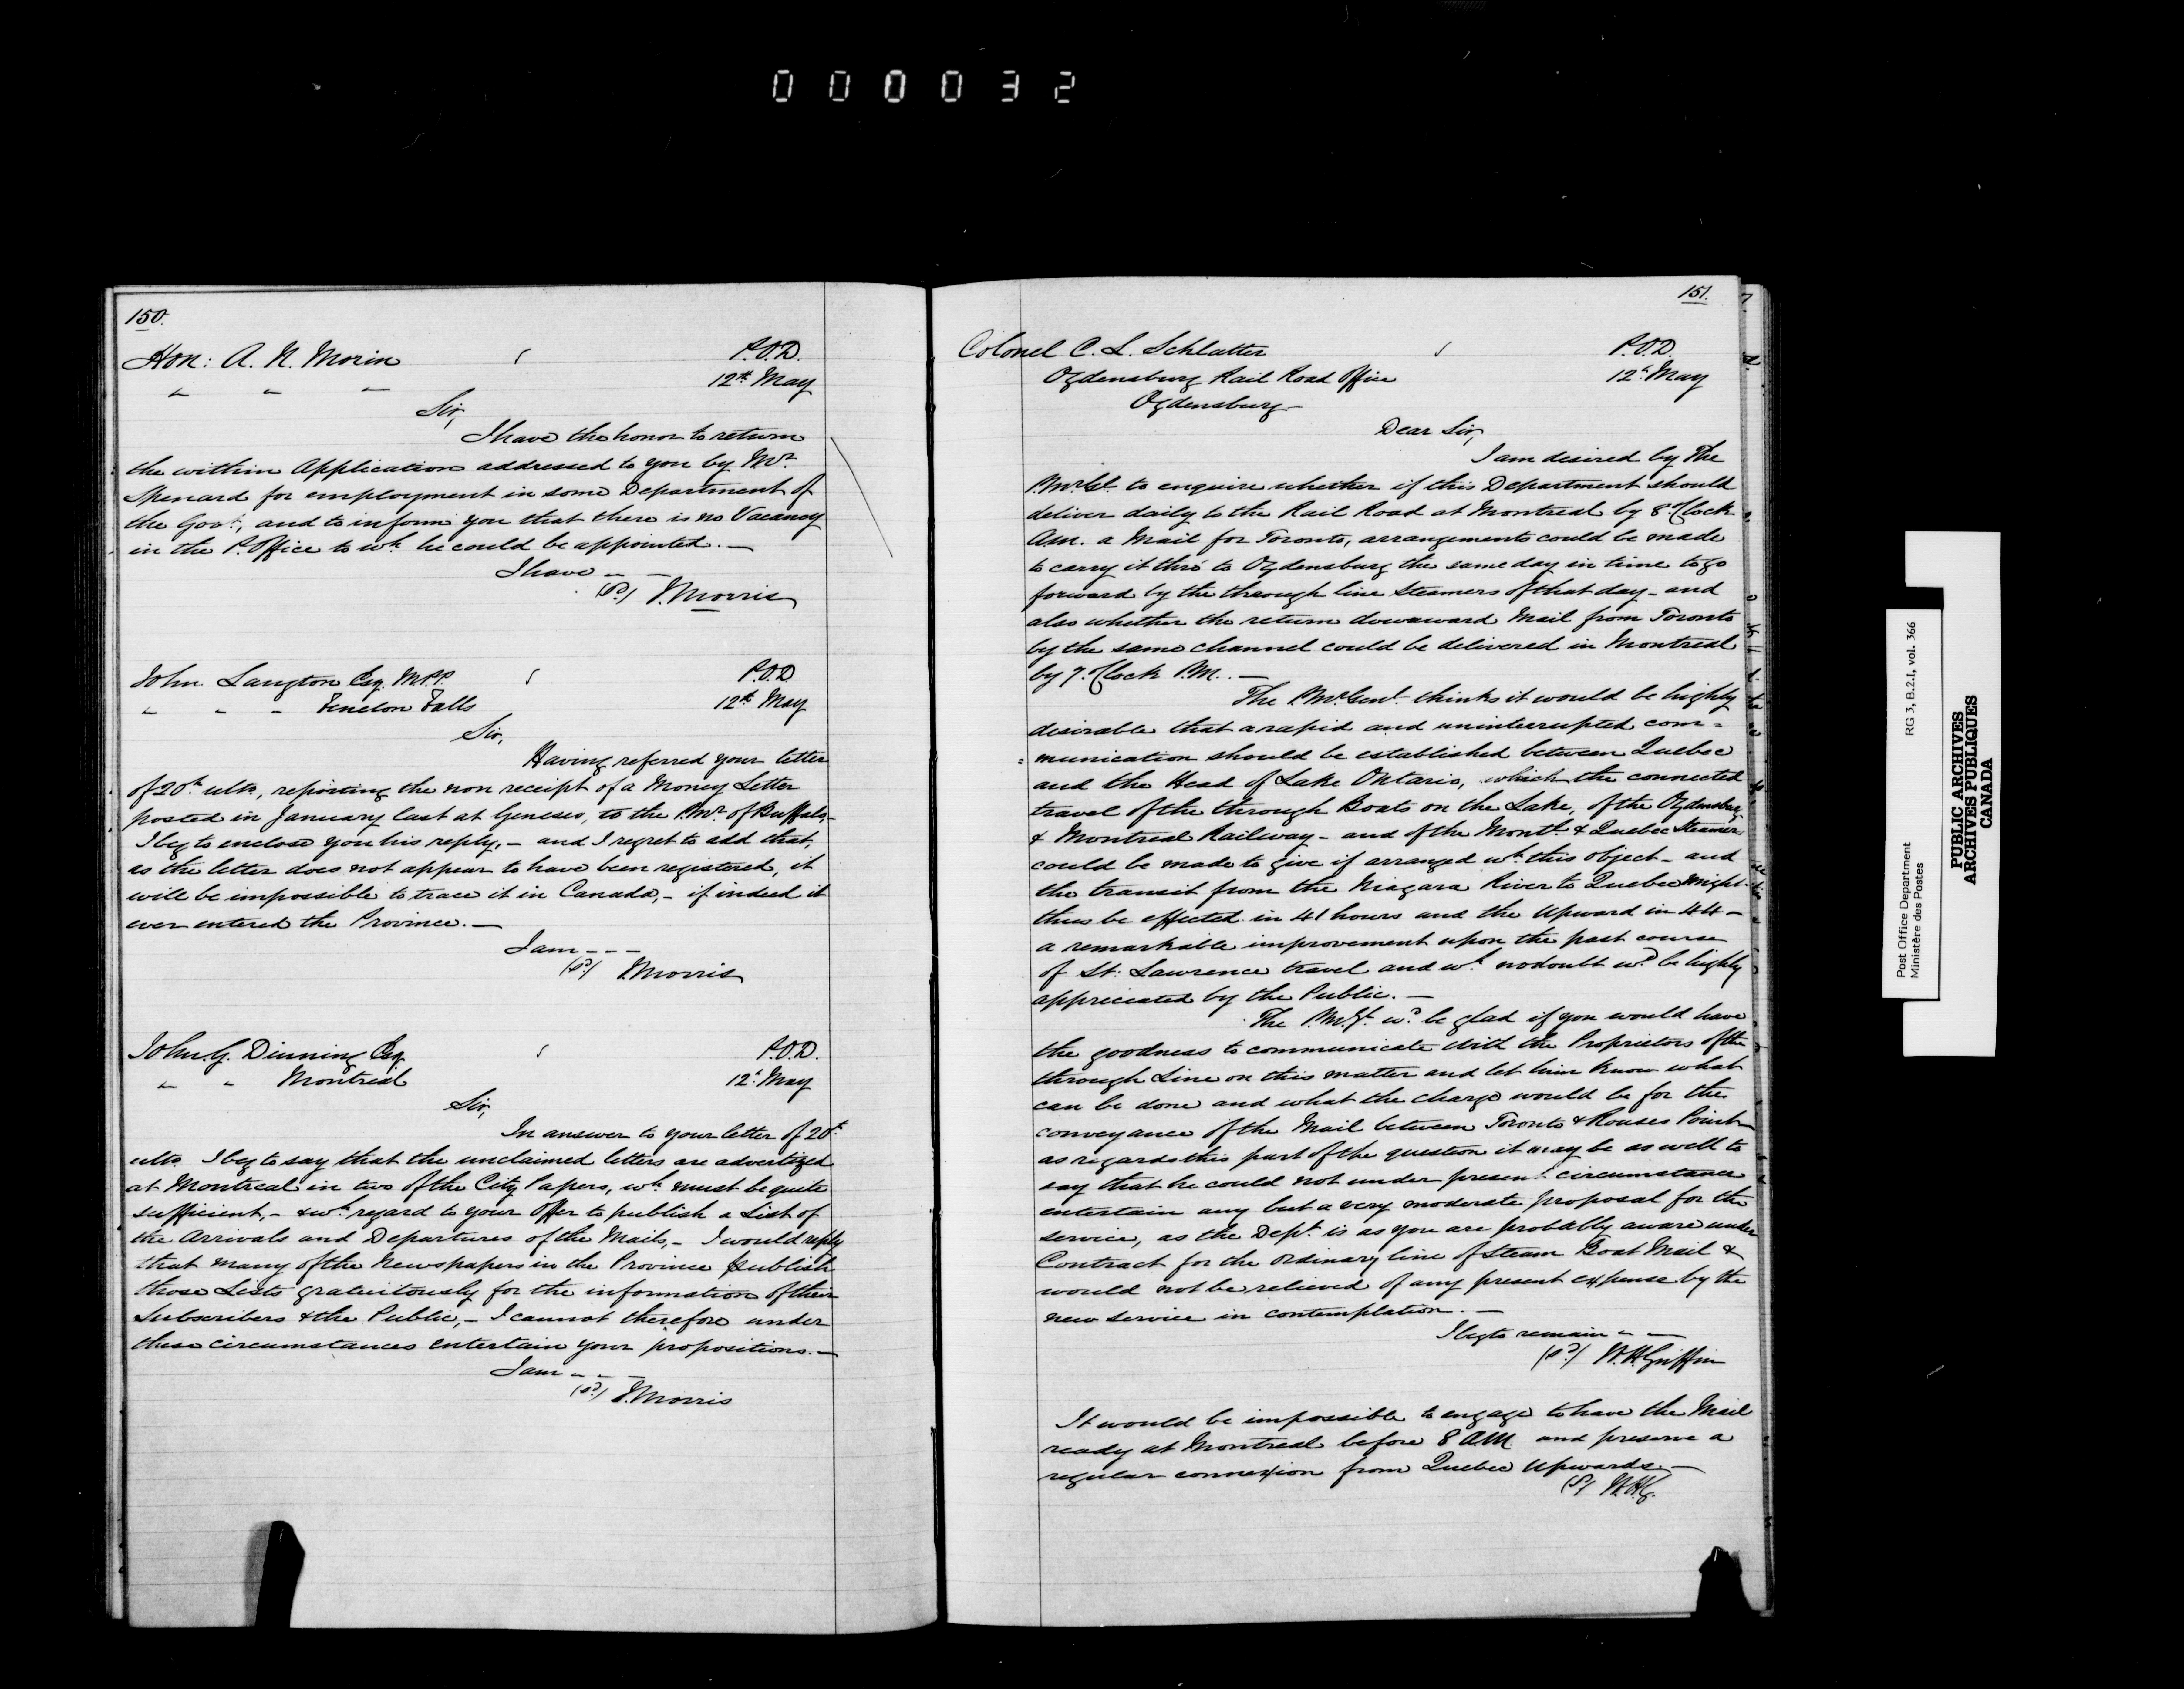 000032
150.
Hon: A. N. Morin
P.O.D.
12th May
Sir,
I have the honor to return
the within Application addressed to you by Mr.
Spenard for employment in some Department of
the Govt., and to inform you that there is no Vacancy
in the P. Office to wh. he could be appointed. —
I have — —
(sd.) J. Morris
John Langton Esq. M.P.P.
P.O.D
" " " Fenelon Falls
12th May
Sir,
Having referred your letter
of 20th ulto, reporting the non receipt of a Money Letter
posted in January last at Geneseo, to the P.Mr. of Buffalo —
I beg to enclose you his reply, — and I regret to add that,
as the letter does not appear to have been registered, it
will be impossible to trace it in Canada, — if indeed it
ever entered the Province. —
I am — — —
(sd.) J. Morris
John G. Dinning Esq.
P.O.D.
" " Montreal
12th May
Sir,
In answer to your letter of 20th
ulto. I beg to say that the unclaimed letters are advertized
at Montreal in two of the City Papers, wh. must be quite
sufficient, — & wh. regard to your Offer to publish a List of
the Arrivals and Departures of the Mails, — I would reply
that many of the Newspapers in the Province publish
those Lists gratuitously for the information of their
Subscribers & the Public, — I cannot therefore under
these circumstances entertain your propositions. —
I am — — —
(sd.) J. Morris
151.
Colonel C. L. Schlatter
P.O.D.
Ogdensburg Rail Road Office
12th May
Ogdensburg —
Dear Sir,
I am desired by The
P.Mr.Gl. to enquire whether if this Department should
deliver daily to the Rail Road at Montreal by 8 o'Clock
A.M. a Mail for Toronto, arrangements could be made
to carry it thro' to Ogdensburg the same day in time to go
forward by the through line Steamers of that day — and
also whether the return downward Mail from Toronto
by the same channel could be delivered in Montreal
by 7 o'Clock P.M. —
The P.Mr.Genl. thinks it would be highly
desirable that a rapid and uninterrupted com =
= munication should be established between Quebec
and the Head of Lake Ontario, which the connected
travel of the through Boats on the Lake, of the Ogdensburg
& Montreal Railway — and of the Montl. & Quebec Steamers
could be made to give if arranged wh. this object — and
the transit from the Niagara River to Quebec might
thus be effected in 41 hours and the Upward in 44 —
a remarkable improvement upon the past course
of St. Lawrence travel and wh. no doubt wd. be highly
appreciated by the Public. —
The P.M.Gl. wd. be glad if you would have
the goodness to communicate with the Proprietors of the
through Line on this matter and let him know what
can be done and what the charge would be for the
conveyance of the Mail between Toronto & Rouses Point —
as regards this part of the question it may be as well to
say that he could not under present circumstance
entertain any but a very moderate proposal for the
service, as the Dept. is as you are probably aware under
Contract for the ordinary line of Steam Boat Mail &
would not be relieved of any present expense by the
new service in contemplation. —
I beg to remain — —
(sd.) W. H. Griffin
It would be impossible to engage to have the Mail
ready at Montreal before 8 A.M. and preserve a
regular connexion from Quebec Upwards. —
(sd) W.H.G.
Post Office Department
Ministère des Postes
RG 3, B.2.I, vol. 366
PUBLIC ARCHIVES
ARCHIVES PUBLIQUES
CANADA